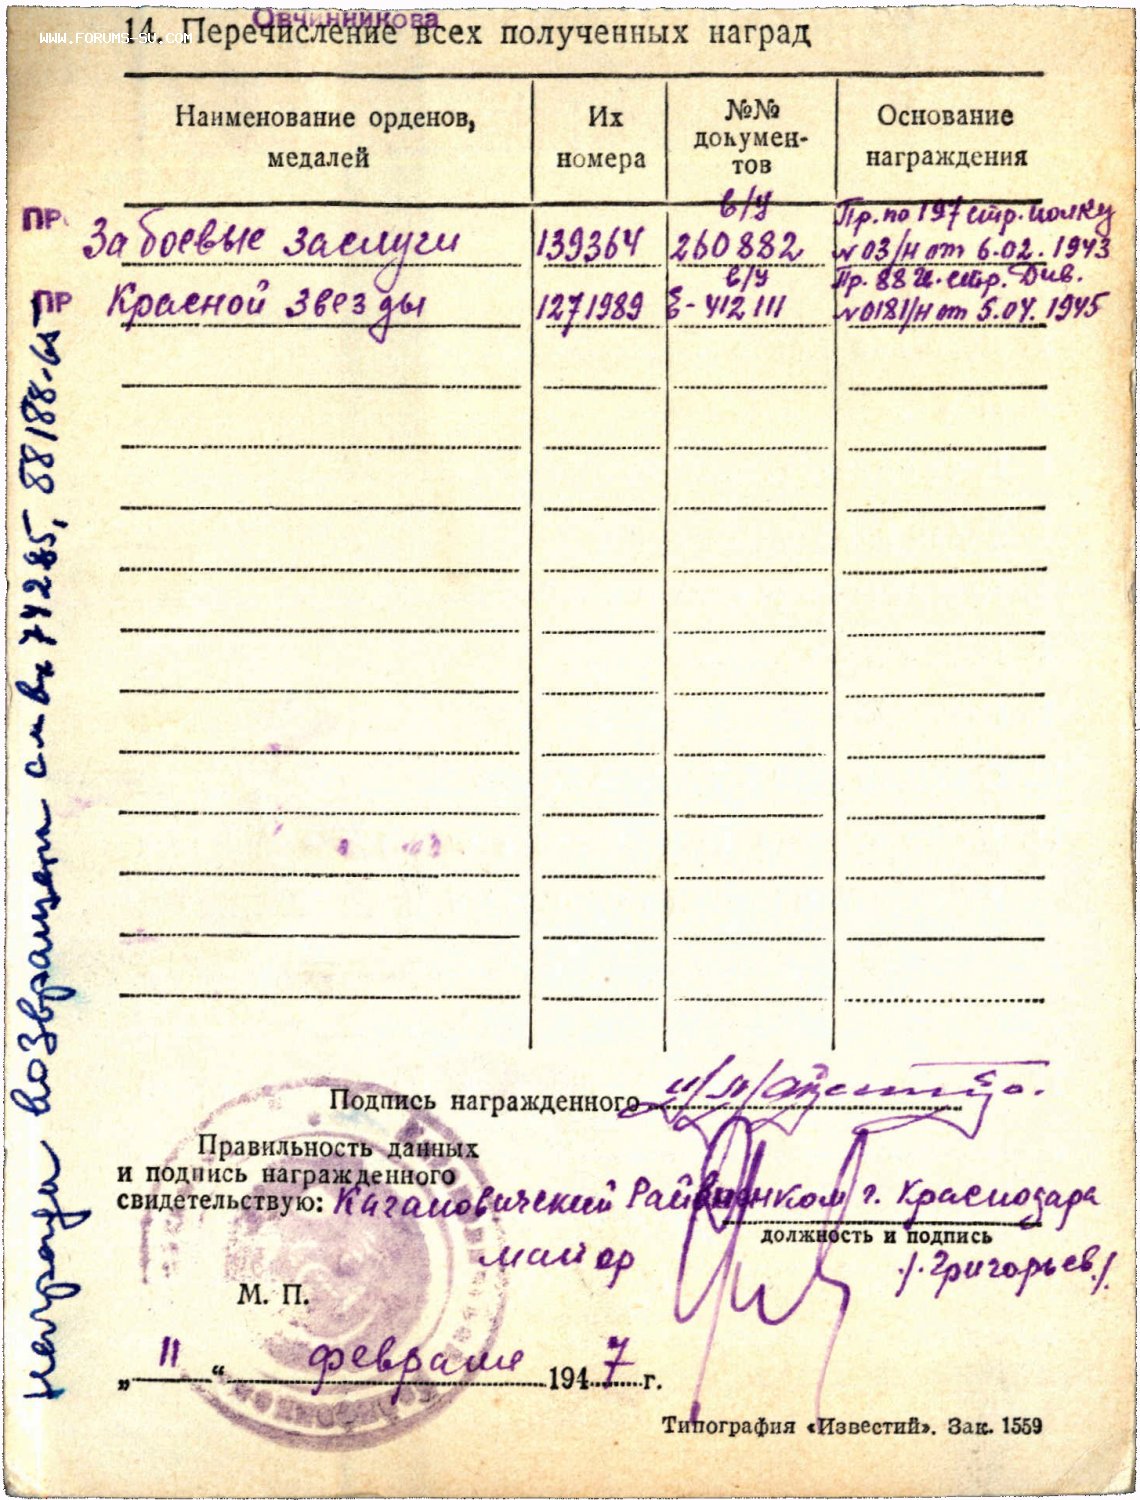 Овчинникова
WWW.FORUMS-SU.COM
14. Перечисление всех полученных наград
Наименование орденов, медалей
Их номера
№№ докумен-
тов
Основание награждения
ПР
За боевые заслуги 139364 в/у 260882 Пр. по 197 стр. полку
№ 03/н от 6.02.1943
ПР
Красной Звезды 1271989 в/у Е-412111 Пр. 88 й. стр. Див.
№ 0181/н от 5.04.1945
Награды возвращены см вх 74285, 88188-
Подпись награжденного
Правильность данных
и подпись награжденного
свидетельствую: Кагановичский Райвоенком г. Краснодара
должность и подпись
майор /.Григорьев./
М. П.
„ 11 “ февраля 1947 г.
Типография «Известий». Зак. 1559